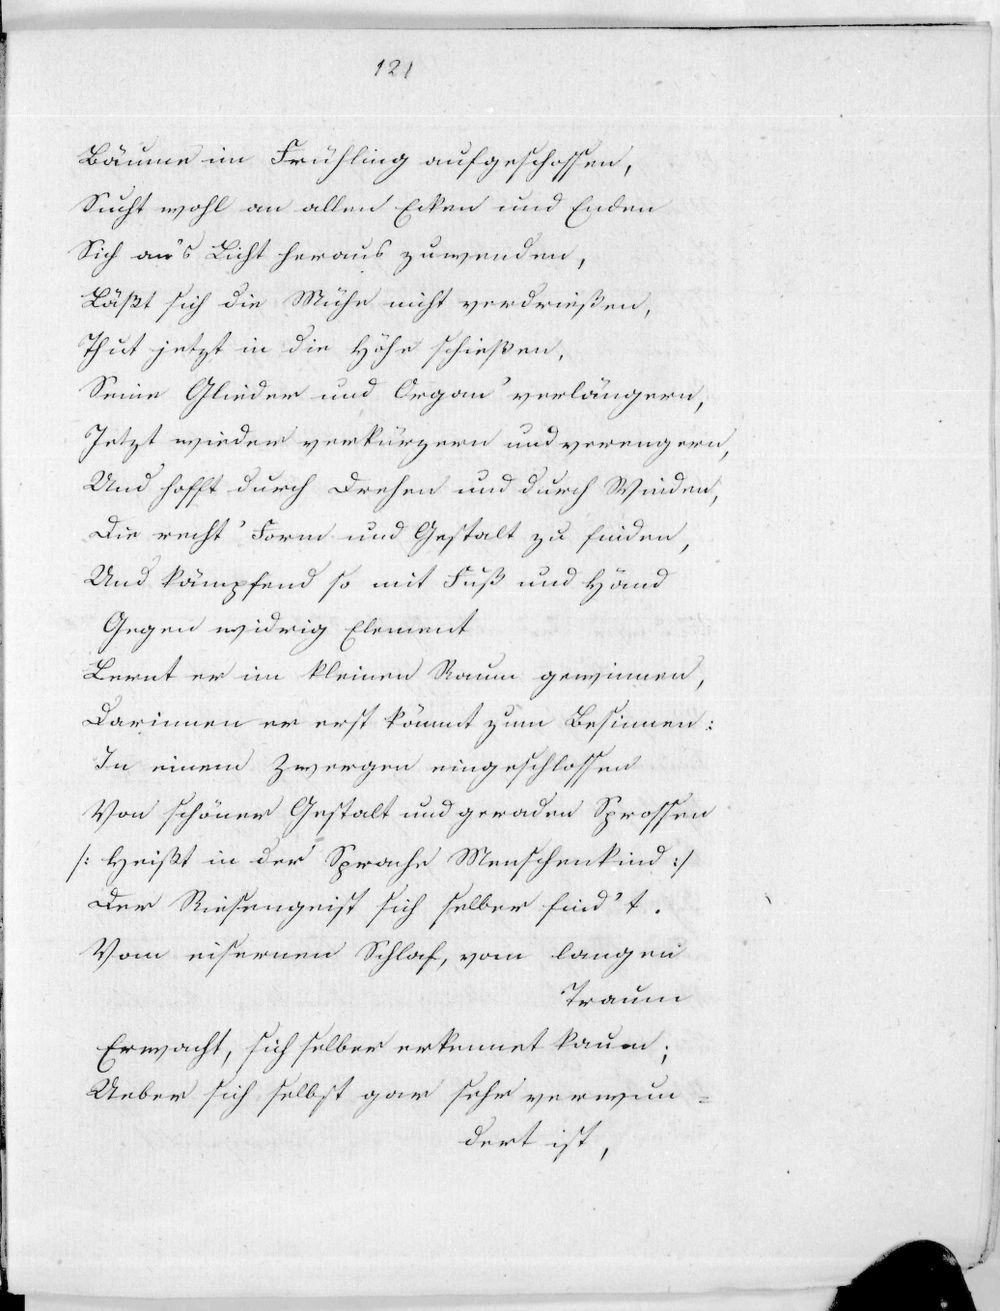 121
Bäume im Frühling aufgeschossen,
Sucht wohl an allen Ecken und Enden
Sich an's Licht heraus zuwenden,
Läßt sich die Mühe nicht verdrießen,
Thut jetzt in die Höhe schießen,
Seine Glieder und Organ' verlängern,
Jetzt wieder verkürzern und verengern,
Und hofft durch Drehen und durch Winden,
Die recht' Form und Gestalt zu finden,
Und kämpfend so mit Fuß und Händ
Gegen widrig Element
Lernt er im kleinen Raum gewinnen,
Darinnen er erst kömmt zum Besinnen:
In einem Zwergen eingeschlossen
Von schöner Gestalt und geraden Sprossen
/: Heißt in der Sprache Menschenkind :/
Der Riesengeist sich selber find't.
Vom eisernen Schlaf, vom langen
Traum
Erwacht, sich selber erkennet kaum;
Ueber sich selbst gar sehr verwun=
dert ist,